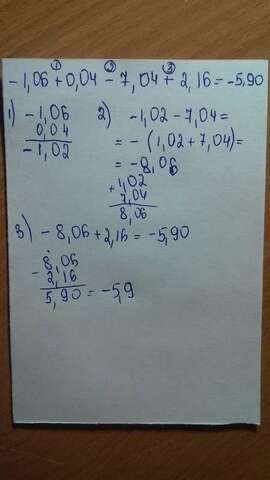 ① ② ③
-1,06+0,04-7,04+2,16=-5,90
1) -1,06
0,04
-1,02
2) -1,02-7,04=
=-(1,02+7,04)=
=-8,06
+1,02
7,04
8,06
3) -8,06+2,16=-5,90
-8,06
2,16
5,90=-5,9